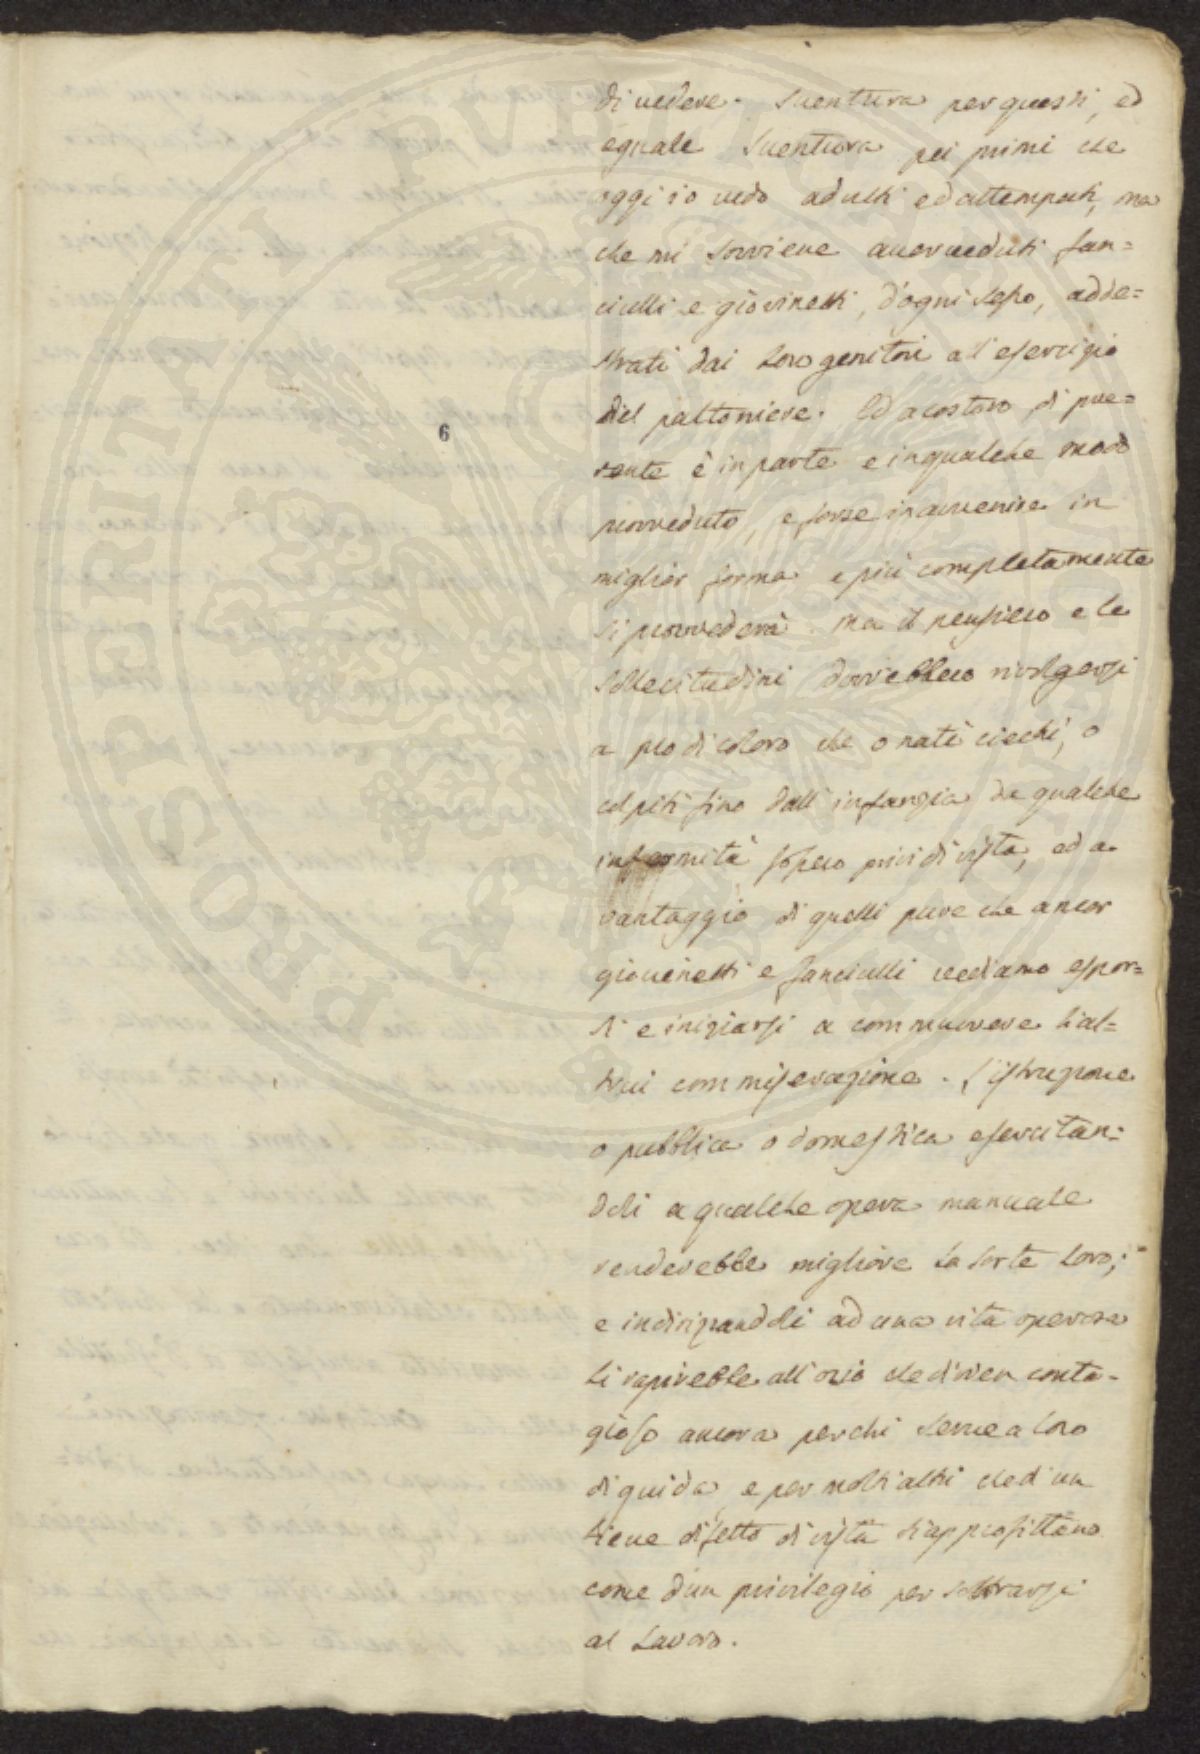 di vedere. Sventura per questi, ed
eguale Sventura pei primi che
oggi io vedo adulti ed attempati, ma
che mi sovviene aver veduti fan=
ciulli e giovinetti, d'ogni sesso, adde=
strati dai loro genitori all'esercizio
del paltoniere. Ed a costoro di pre=
sente è in parte e in qualche modo
provveduto, e forse in avvenire in
miglior forma e più completamente
si provvederà. Ma il pensiero e le
sollecitudini dovrebbero rivolgersi
6
a pro di coloro che o nati ciechi, o
colpiti fino dall'infanzia da qualche
infermità sopero privi di vista, ed a
vantaggio di quelli pure che ancor
giovinetti e fanciulli vediamo espor=
si e iniziarsi a commuovere l'al=
trui commiserazione. L'istruzione
o pubblica o domestica esercitan=
doli a qualche opera manuale
renderebbe migliore la sorte loro;
e indirizzandoli ad una vita operosa
li rapirebbe all'ozio che divien conta=
gioso ancora perchi serve a loro
di guida, e per molti altri che d'un
lieve difetto di vista s'approfittano
come d'un privilegio per sottrarsi
al lavoro.
PROSPERITATI PVBLICAE